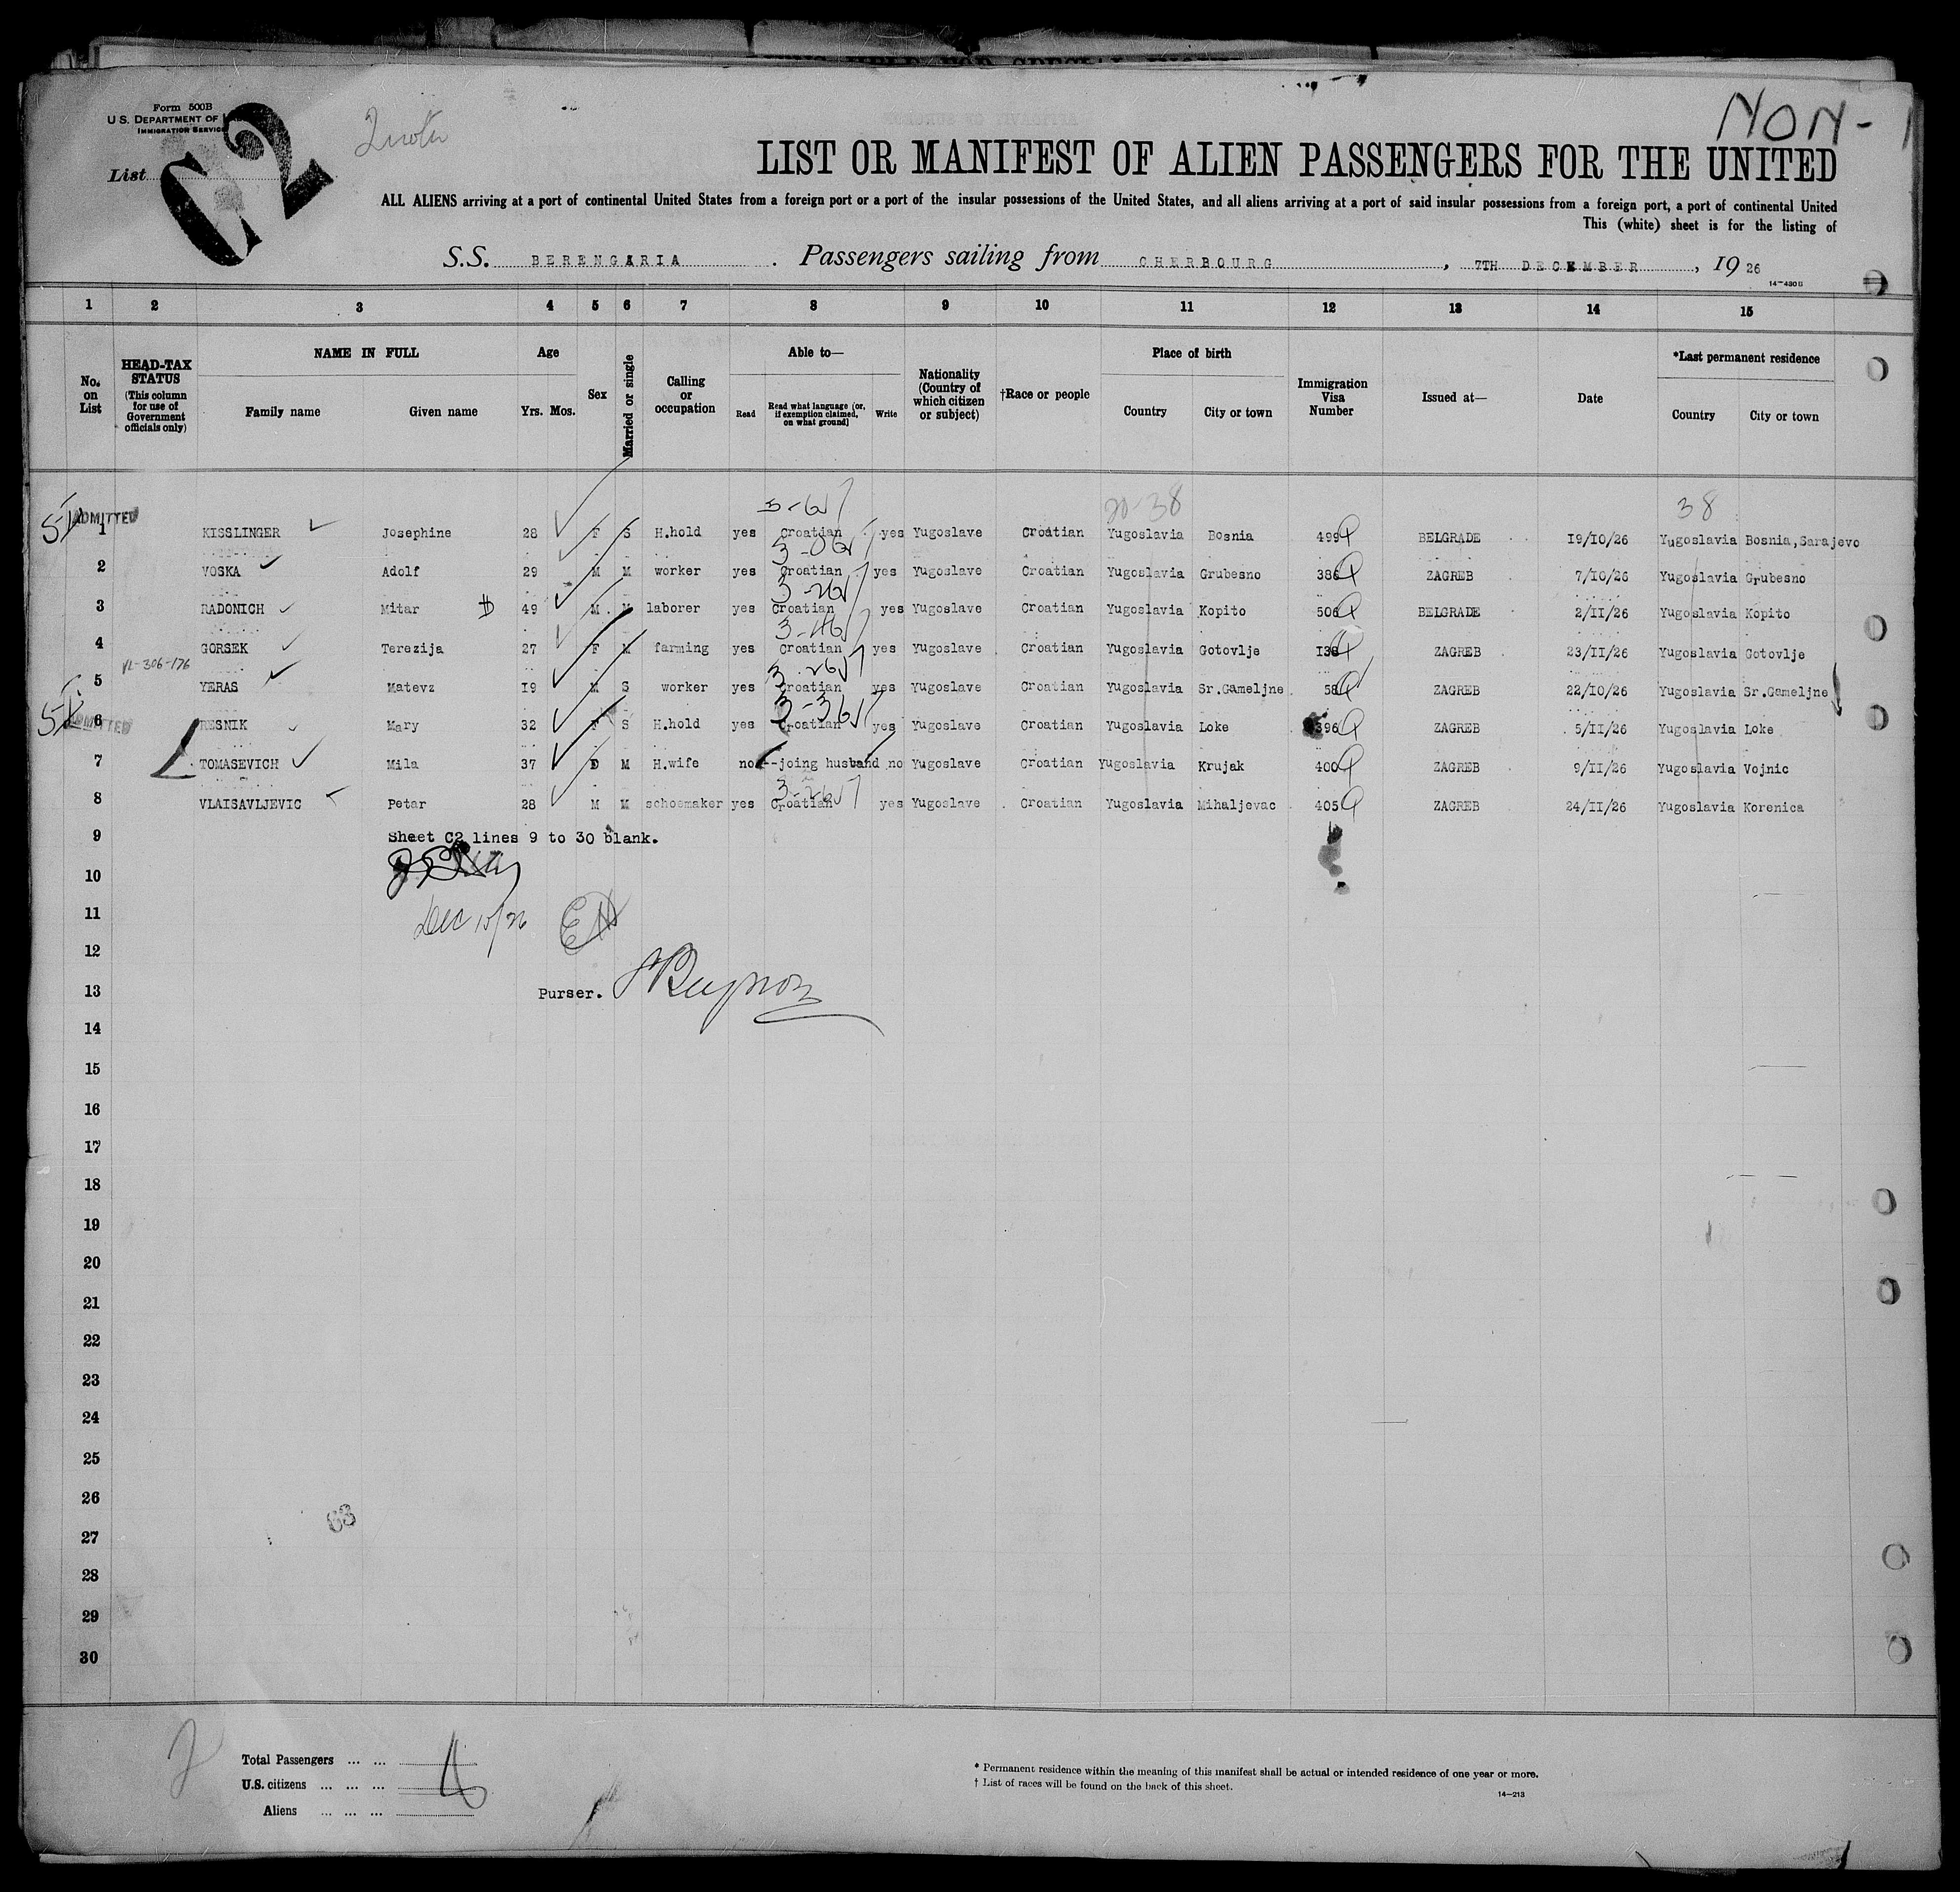 NON-
Form 500B
U.S. DEPARTMENT OF
IMMIGRATION SERVICE
List
C2
LIST OR MANIFEST OF ALIEN PASSENGERS FOR THE UNITED
ALL ALIENS arriving at a port of continental United States from a foreign port or a port of the insular possessions of the United States, and all aliens arriving at a port of said insular possessions from a foreign port, a port of continental United
This (white) sheet is for the listing of
S.S. BERENGARIA. Passengers sailing from CHERBOURG, 7TH DECEMBER, 1926
14-430
1 2 3 4 5 6 7 8 9 10 11 12 13 14 15
No. on List
HEAD-TAX STATUS (This column for use of Government officials only)
NAME IN FULL Family name Given name
Age Yrs. Mos.
Sex
Married or single
Calling or occupation
Able to— Read Read what language (or, if exemption claimed, on what ground) Write
Nationality (Country of which citizen or subject)
†Race or people
Place of birth Country City or town
Immigration Visa Number
Issued at—
Date
*Last permanent residence Country City or town
20-38 38
ADMITTED
1 KISSLINGER Josephine 28 F S H.hold yes Croatian yes Yugoslave Croatian Yugoslavia Bosnia 499 BELGRADE 19/10/26 Yugoslavia Bosnia,Sarajevo
2 VOSKA Adolf 29 M M worker yes Croatian yes Yugoslave Croatian Yugoslavia Grubesno 386 ZAGREB 7/10/26 Yugoslavia Grubesno
3 RADONICH Mitar 49 M M laborer yes Croatian yes Yugoslave Croatian Yugoslavia Kopito 506 BELGRADE 2/11/26 Yugoslavia Kopito
4 GORSEK Terezija 27 F M farming yes Croatian yes Yugoslave Croatian Yugoslavia Gotovlje 138 ZAGREB 23/11/26 Yugoslavia Gotovlje
VL-306-176
5 YERAS Matevz 19 M S worker yes Croatian yes Yugoslave Croatian Yugoslavia Sr.Gameljne 58 ZAGREB 22/10/26 Yugoslavia Sr.Gameljne
ADMITTED
6 RESNIK Mary 32 F S H.hold yes Croatian yes Yugoslave Croatian Yugoslavia Loke 396 ZAGREB 5/11/26 Yugoslavia Loke
7 TOMASEVICH Mila 37 M H.wife no --joing husband no Yugoslave Croatian Yugoslavia Krujak 400 ZAGREB 9/11/26 Yugoslavia Vojnic
8 VLAISAVLJEVIC Petar 28 M M schoemaker yes Croatian yes Yugoslave Croatian Yugoslavia Mihaljevac 405 ZAGREB 24/11/26 Yugoslavia Korenica
9 Sheet C2 lines 9 to 30 blank.
10
11 Dec 15/26
12
13 Purser.
14
15
16
17
18
19
20
21
22
23
24
25
26
27
28
29
30
Total Passengers ... ...
U.S. citizens ... ... ...
Aliens ... ... ...
* Permanent residence within the meaning of this manifest shall be actual or intended residence of one year or more.
† List of races will be found on the back of this sheet.
14-213